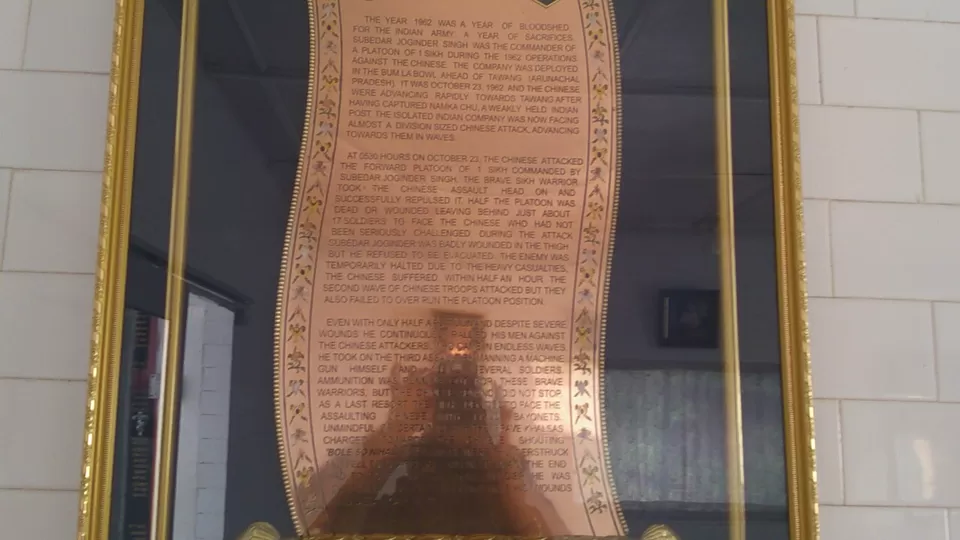 THE YEAR 1962 WAS A YEAR OF BLOODSHED,
FOR THE INDIAN ARMY A YEAR OF SACRIFICES.
SUBEDAR JOGINDER SINGH WAS THE COMMANDER OF
A PLATOON OF 1 SIKH DURING THE 1962 OPERATIONS
AGAINST THE CHINESE. THE COMPANY WAS DEPLOYED
IN THE BUM LA BOWL AHEAD OF TAWANG (ARUNACHAL
PRADESH). IT WAS OCTOBER 23, 1962 AND THE CHINESE
WERE ADVANCING RAPIDLY TOWARDS TAWANG AFTER
HAVING CAPTURED NAMKA CHU, A WEAKLY HELD INDIAN
POST. THE ISOLATED INDIAN COMPANY WAS NOW FACING
ALMOST A DIVISION SIZED CHINESE ATTACK, ADVANCING
TOWARDS THEM IN WAVES.
AT 0530 HOURS ON OCTOBER 23, THE CHINESE ATTACKED
THE FORWARD PLATOON OF 1 SIKH COMMANDED BY
SUBEDAR JOGINDER SINGH. THE BRAVE SIKH WARRIOR
TOOK THE CHINESE ASSAULT HEAD ON AND
SUCCESSFULLY REPULSED IT. HALF THE PLATOON WAS
DEAD OR WOUNDED LEAVING BEHIND JUST ABOUT
17 SOLDIERS TO FACE THE CHINESE WHO HAD NOT
BEEN SERIOUSLY CHALLENGED DURING THE ATTACK.
SUBEDAR JOGINDER WAS BADLY WOUNDED IN THE THIGH
BUT HE REFUSED TO BE EVACUATED. THE ENEMY WAS
TEMPORARILY HALTED DUE TO THE HEAVY CASUALTIES,
THE CHINESE SUFFERED. WITHIN HALF AN HOUR THE
SECOND WAVE OF CHINESE TROOPS ATTACKED BUT THEY
ALSO FAILED TO OVER RUN THE PLATOON POSITION.
EVEN WITH ONLY HALF A AND DESPITE SEVERE
WOUNDS HE CONTINUOUSLY HIS MEN AGAINST
THE CHINESE ATTACKERS, IN ENDLESS WAVES.
HE TOOK ON THE THIRD MANNING A MACHINE
GUN HIMSELF AND SEVERAL SOLDIERS.
AMMUNITION WAS FOR THESE BRAVE
WARRIORS, BUT DID NOT STOP.
AS A LAST TO FACE THE
ASSAULTING BAYONETS.
UNMINDFUL KHALSAS
CHARGED SHOUTING
'BOLE SO
THE END
HE WAS
WOUNDS